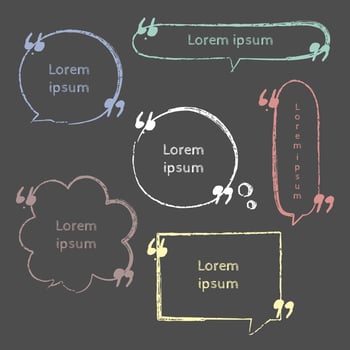 Lorem ipsum
Lorem
ipsum
Lorem
ipsum
Lorem ipsum
Lorem
ipsum
Lorem
ipsum